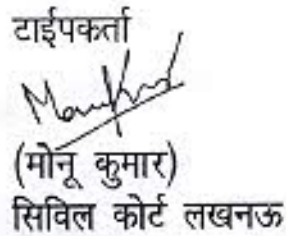 टाईपकर्ता
(मोनू कुमार)
सिविल कोर्ट लखनऊ